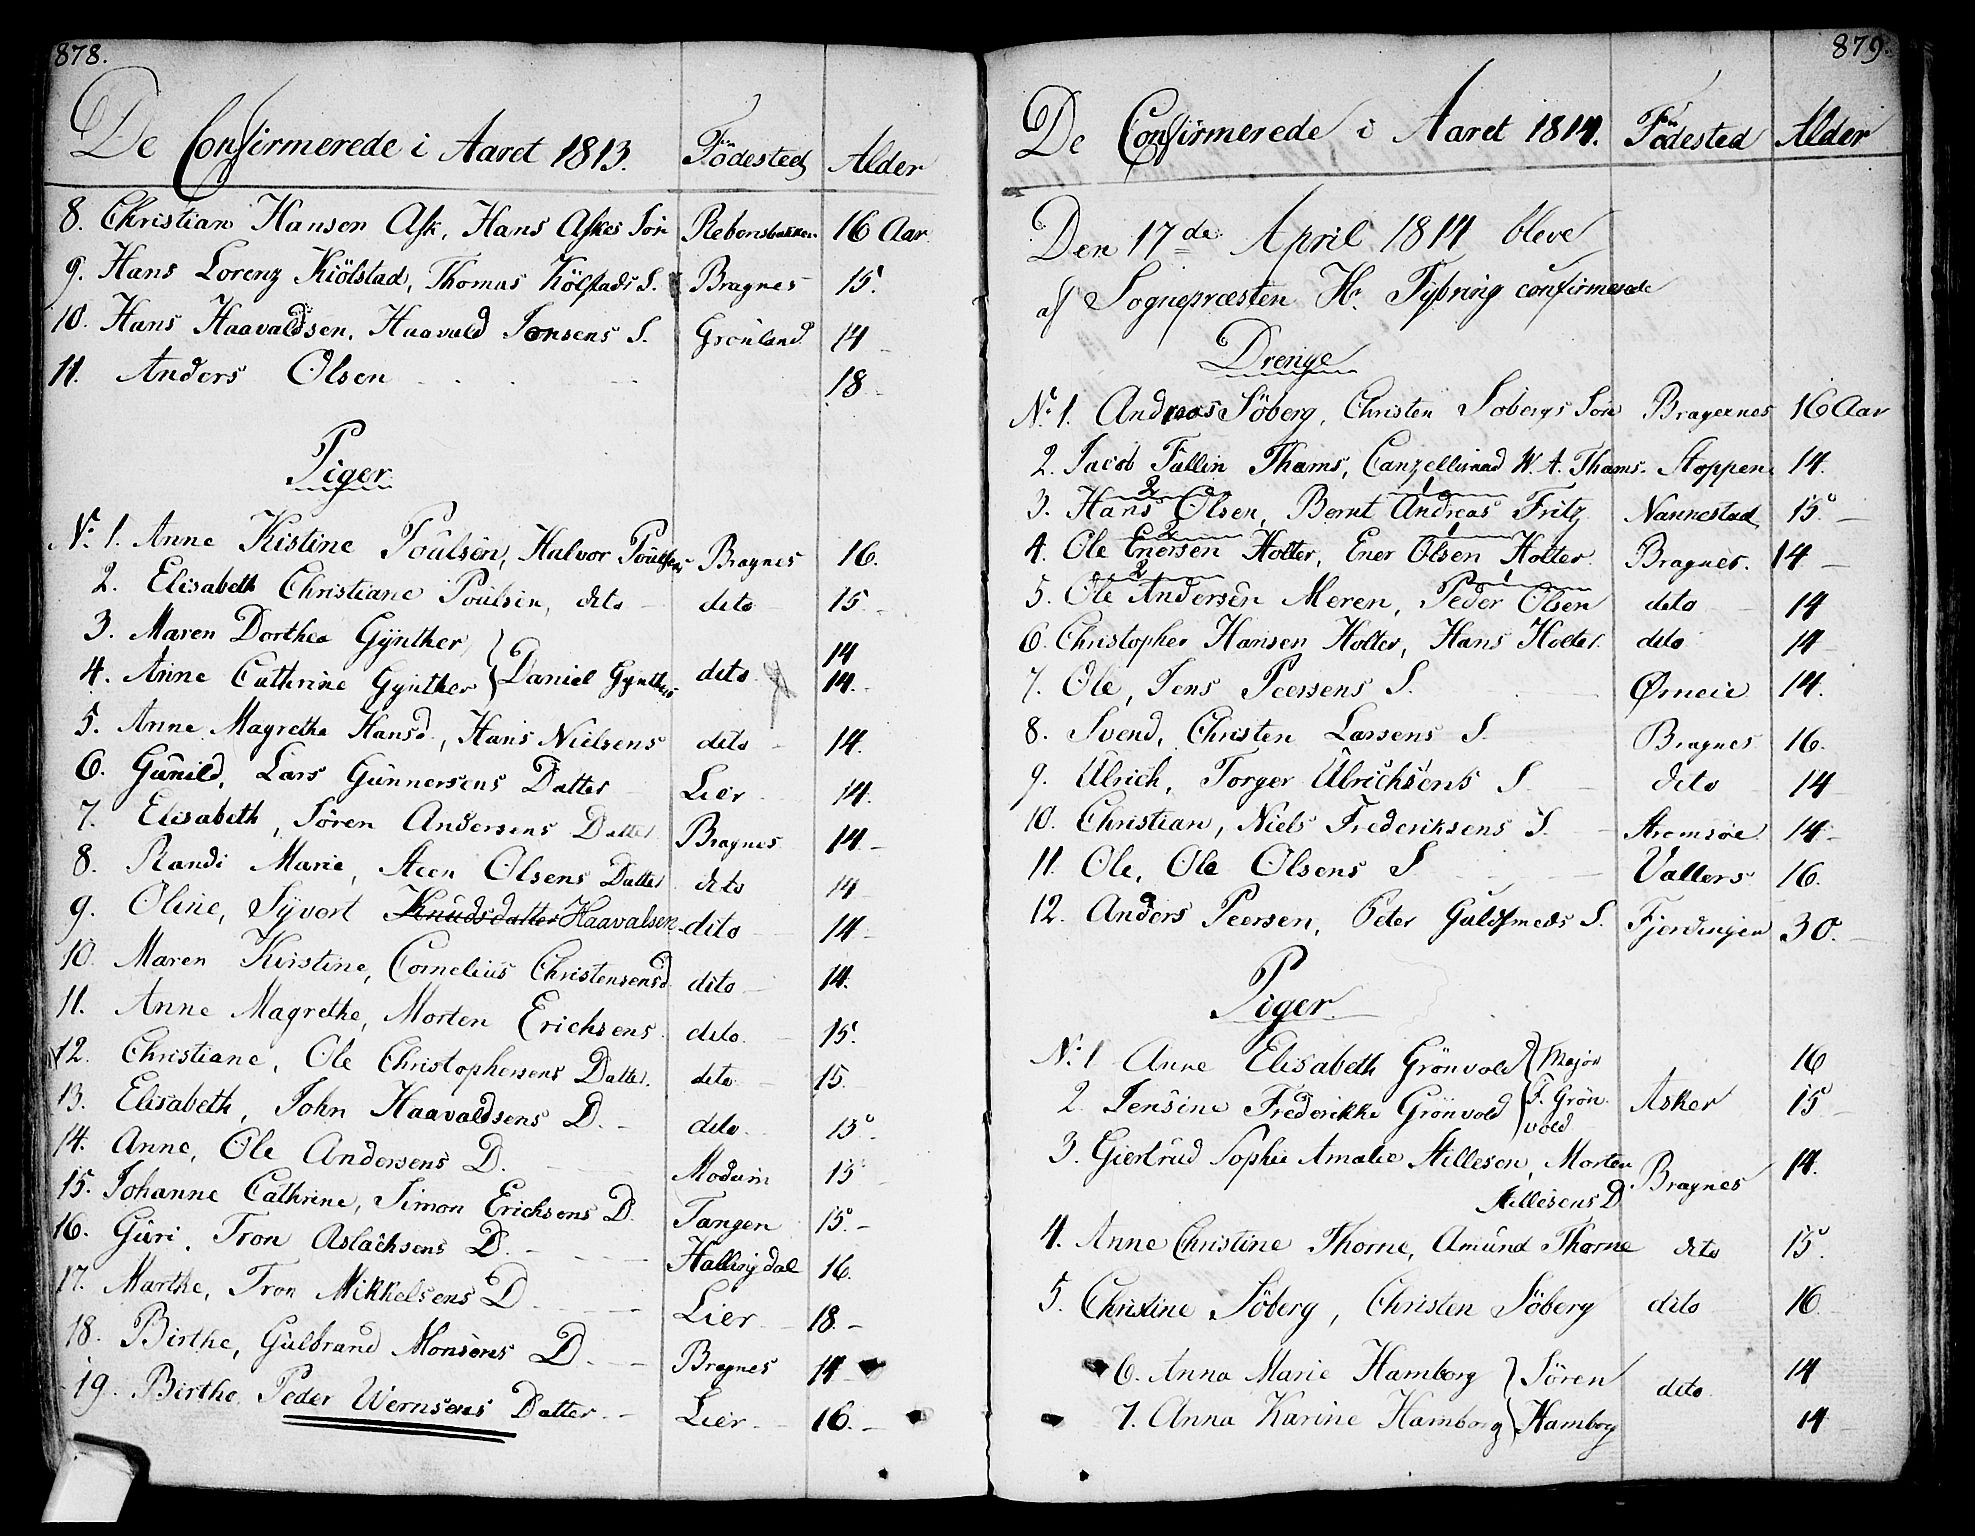 878.
De Confirmerede i Aaret 1813. Födested Alder
8. Christian Hansen Ask, Hans Askes Sön Rebensbakken 16 Aar
9. Hans Lorenz Kiölstad, Thomas Kölstads S. Bragnes 15.
10. Hans Haavaldsen, Haavald Jonsens S. Grönland 14
11. Anders Olsen 18
Piger
No. 1. Anne Kistine Poulsen, Halvor Poulsens Bragnes 16.
2. Elisabeth Christiane Poulsen, dito dito 15
3. Maren Dorthea Gynther 14
4. Anne Cathrine Gynther } Daniel Gynthers dito 14.
5. Anne Magrethe Hansd., Hans Nielsens dito 14.
6. Gunild, Lars Gunnersens Datter Lier 14.
7. Elisabeth, Sören Andersens Datter Bragnes 14
8. Randi Marie, Steen Olsens Datter dito 14
9. Oline, Syvert Knudsdatter Haavalsen dito 14
10. Maren Kirstine, Cornelius Christensens d dito 14.
11. Anne Magrethe, Morten Erichsens dito. 15.
12. Christiane, Ole Christophersens Datter. dito 15.
13. Elisabeth, John Haavaldsens D. dito. 15.
14. Anne, Ole Andersens D. Modum 15
15. Johanne Cathrine, Simon Erichsens D. Tangen 15.
16. Guri, Tron Aslachsens D. Hallingdal 16.
17. Marthe, Tron Mikkelsens D Lier 18.
18. Birthe, Gulbrand Monsens D. Bragnes 14
19. Birthe Peder Wernsens Datter. Lier. 16.
879.
De Confirmerede i Aaret 1814. Födested Alder
Den 17de April 1814 bleve
af Sognepræsten Hr. Tybring confirmerede
Drenge
No. 1. Andreas Söberg, Christen Sobergs Sön Bragernes 16 Aar
2. Jacob Fallin Thams, Cancelliraad W. A. Thams. Stoppen 14.
3. Hans Olsen, Bernt Andreas Fritz Nannestad 15.
4. Ole Enersen Holter, Ener Olsen Holter. Bragnes. 14
5. Ole Andersen Meren, Peder Olsen dito 14
6. Christopher Hansen Holter, Hans Holter dito 14
7. Ole, Jens Peersens S. Ørneie 14.
8. Svend, Christen Larsens S. Bragnes 16.
9. Ulrich, Torger Ulrichsens S. dito 14
10. Christian, Niels Frederiksens S. Stromsöe 14.
11. Ole, Ole Olsens S Vallers 16.
12. Anders Peersen, Peter Guldsmeds S. Fjerdingen 30.
Piger.
No. 1 Anne Elisabeth Grönvold { Major 16
2. Jensine Frederikke Grönvold F. Grönvold Asker 15
3. Giertrud Sophie Amalie Stillesen, Morten
Stillesens D Bragnes 14.
4. Anne Christine Thorne, Amund Thorne dito 15.
5. Christine Söberg, Christen Söberg dito 16
6. Anna Marie Hamborg } Sören 14
7. Anna Karine Hamborg } Hamborg dito. 14